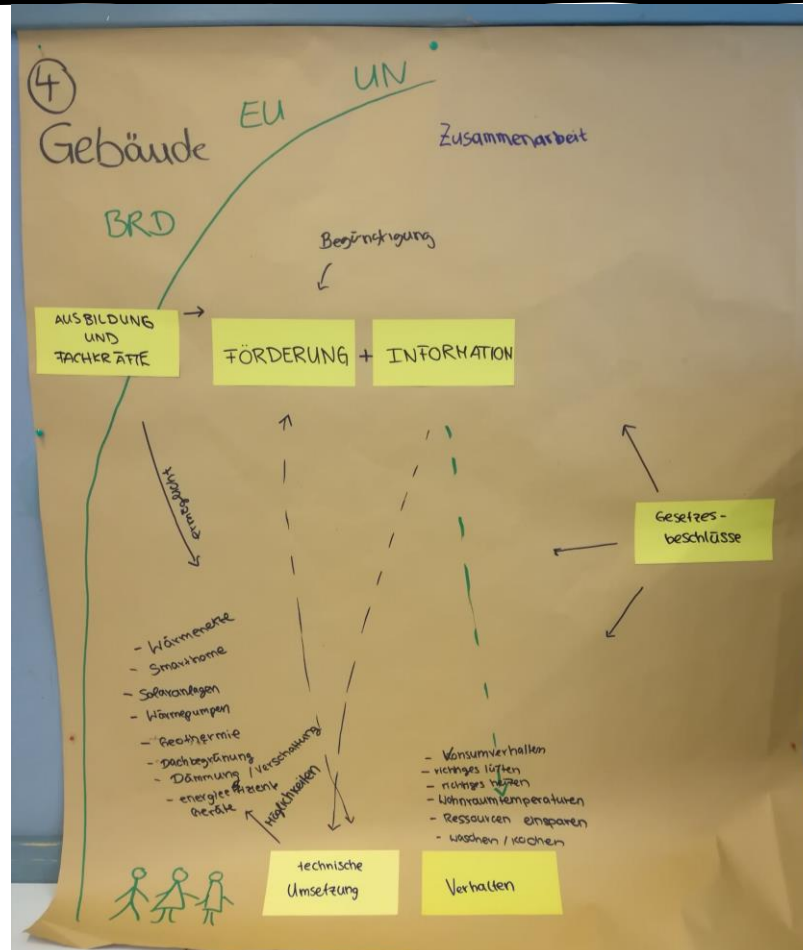 4
Gebäude
BRD
EU
UN
Zusammenarbeit
Begünstigung
AUSBILDUNG
UND
FACHKRÄFTE
FÖRDERUNG + INFORMATION
Gesetzes-
beschlüsse
ermöglicht
- Wärmenetze
- Smarthome
- Solaranlagen
- Wärmepumpen
- Geothermie
- Dachbegrünung
- Dämmung / Verschattung
- energieeffiziente
Geräte
Möglichkeiten
- Konsumverhalten
- richtiges lüften
- richtiges heizen
- Wohnraumtemperaturen
- Ressourcen einsparen
- waschen / kochen
technische
Umsetzung
Verhalten